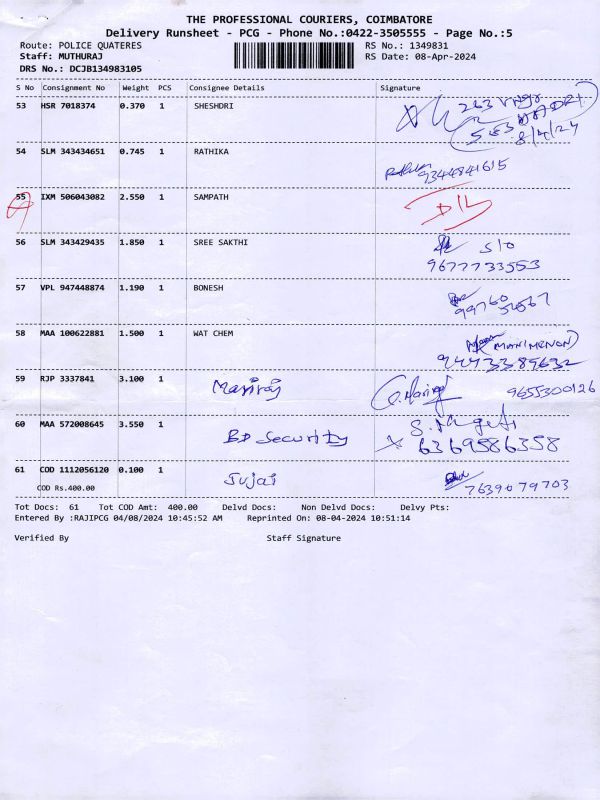 THE PROFESSIONAL COURIERS, COIMBATORE
Delivery Runsheet - PCG - Phone No.:0422-3505555 - Page No.:5
Route: POLICE QUATERES RS No.: 1349831
Staff: MUTHURAJ RS Date: 08-Apr-2024
DRS No.: DCJB134983105
S No Consignment No Weight PCS Consignee Details Signature
53 HSR 7018374 0.370 1 SHESHDRI 263
8/4/24
54 SLM 343434651 0.745 1 RATHIKA
9344841615
55 IXM 506043082 2.550 1 SAMPATH D/L
56 SLM 343429435 1.850 1 SREE SAKTHI S/o
9677733553
57 VPL 947448874 1.190 1 BONESH
99760
58 MAA 100622881 1.500 1 WAT CHEM (MANIMENON)
59 RJP 3337841 3.100 1 Maniraj 9655300126
60 MAA 572008645 3.550 1 BD Security
6369586358
61 COD 1112056120 0.100 1 Sujai
COD Rs.400.00 7639079703
Tot Docs: 61 Tot COD Amt: 400.00 Delvd Docs: Non Delvd Docs: Delvy Pts:
Entered By :RAJIPCG 04/08/2024 10:45:52 AM Reprinted On: 08-04-2024 10:51:14
Verified By Staff Signature